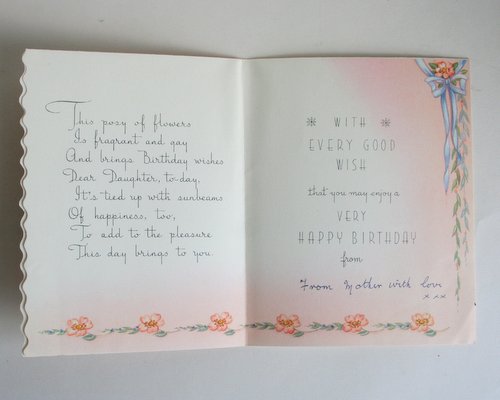 This posy of flowers
Is fragrant and gay
And brings Birthday wishes
Dear Daughter, to-day,
It's tied up with sunbeams
Of happiness, too,
To add to the pleasure
This day brings to you.
WITH
EVERY GOOD
WISH
that you may enjoy a
VERY
HAPPY BIRTHDAY
from
From Mother with love
x x x